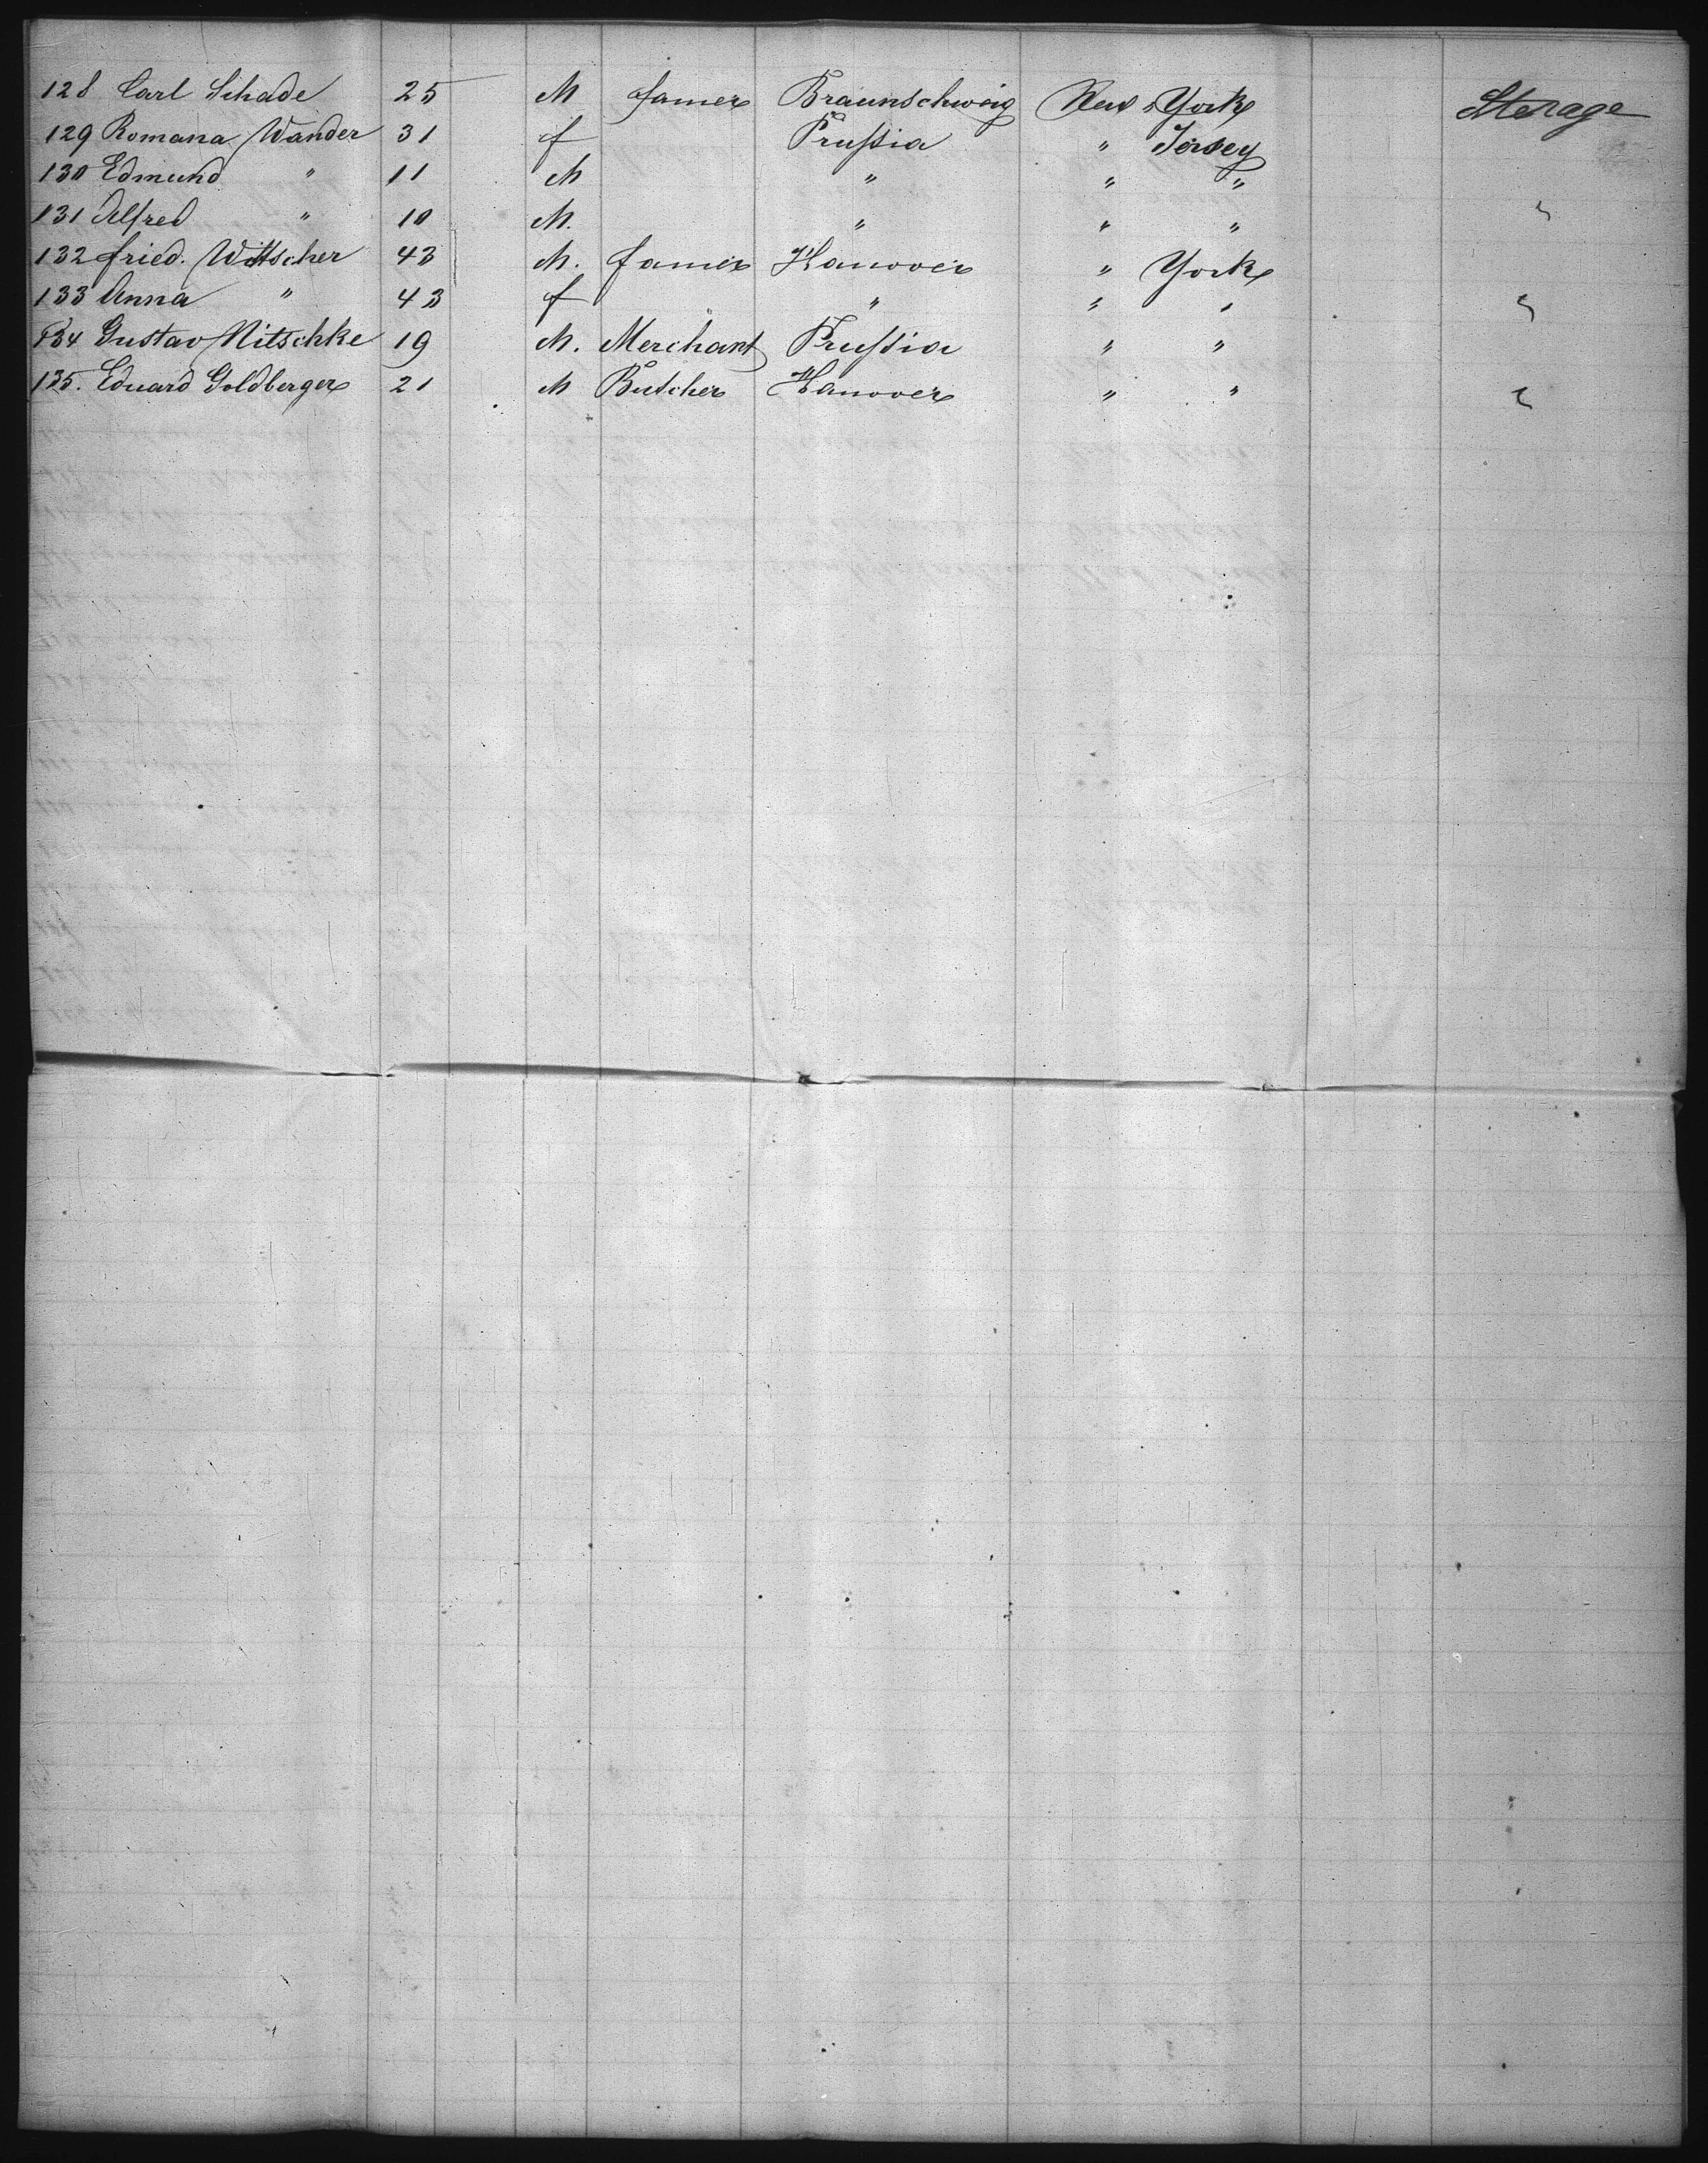 128 Carl Schade 25 M famer Braunschweig New York Sterage
129 Romana Wander 31 f Prussia " Jersey
130 Edmund " 11 M " " "
131 Alfred " 10 M. " " " "
132 fried. Wittscher 43 M. famer Hanover " York
133 Anna " 43 f " " " "
134 Gustav Nitschke 19 M. Merchant Prussia " "
135. Eduard Goldberger 21 M Butcher Hanover " " "